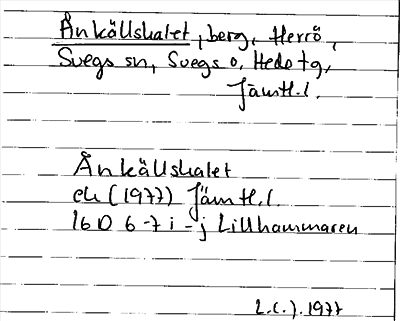 Ånkällskalet, berg, Herrö,
Svegs sn, Svegs o. Hede tg,
Jämtl.l.
Ånkällskalet
ek (1977) Jämtl.l.
16 D 6-7 i-j Lillhammaren
L.C.J. 1977